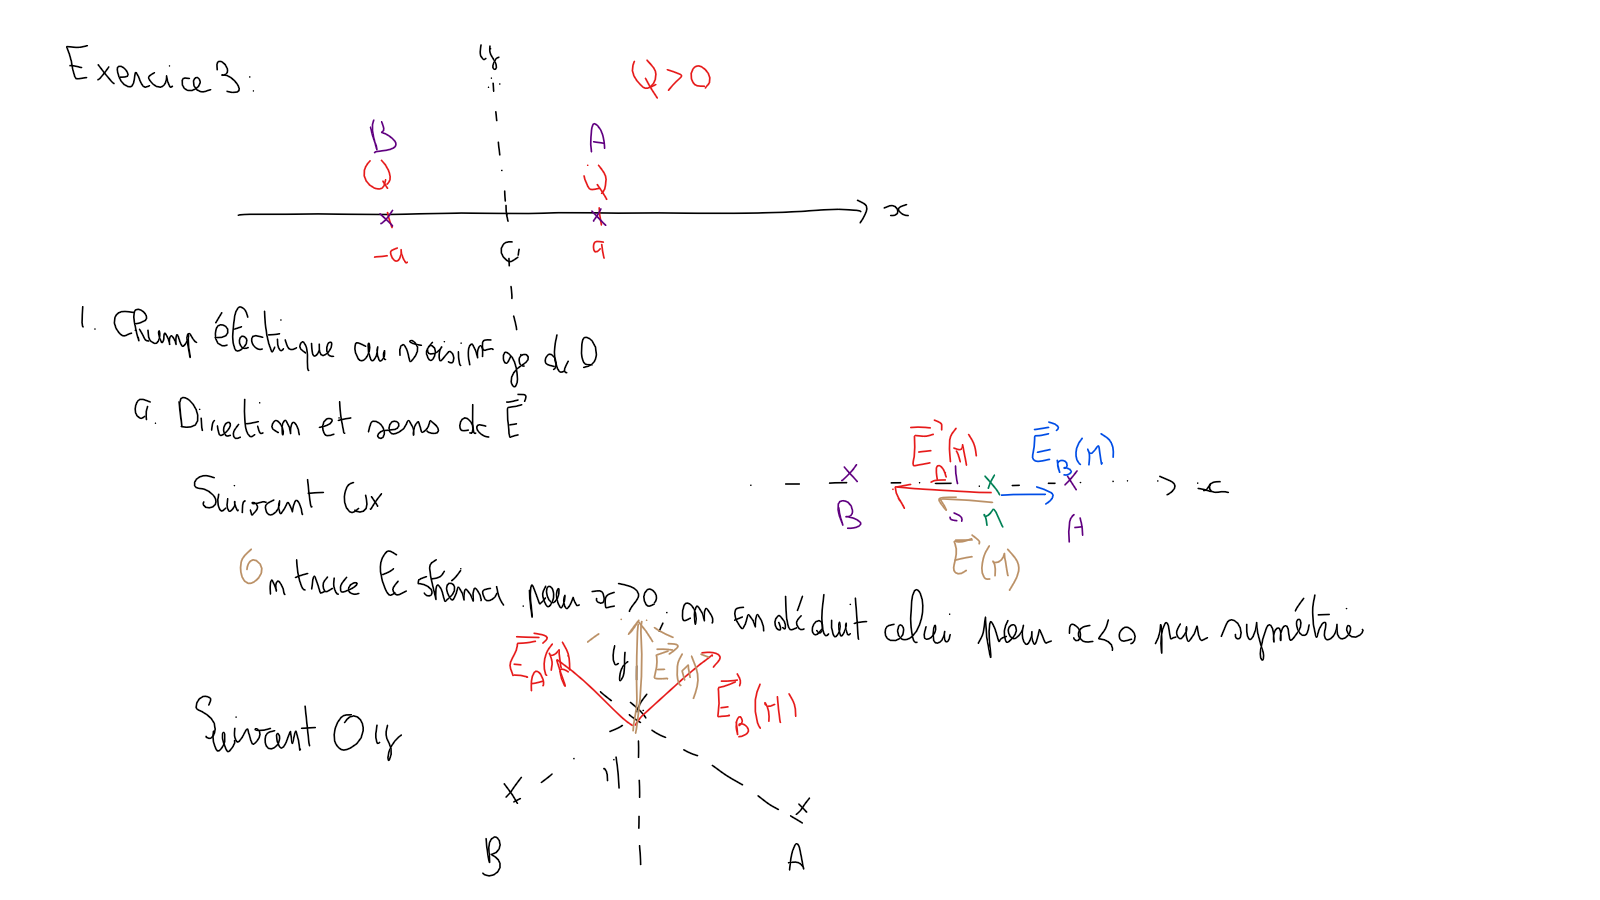 Exercice 3 :
y
Q > 0
B
A
Q
Q
x
-a
O
a
1. Champ électrique au voisinage de O
a. Direction et sens de E
E_A(M)
E_B(M)
Suivant Ox
x
B
O
M
A
E(M)
On trace le schéma pour x > 0, on en déduit celui pour x < 0 par symétrie
E_A(M)
y
E(M)
E_B(M)
Suivant Oy
M
B
A